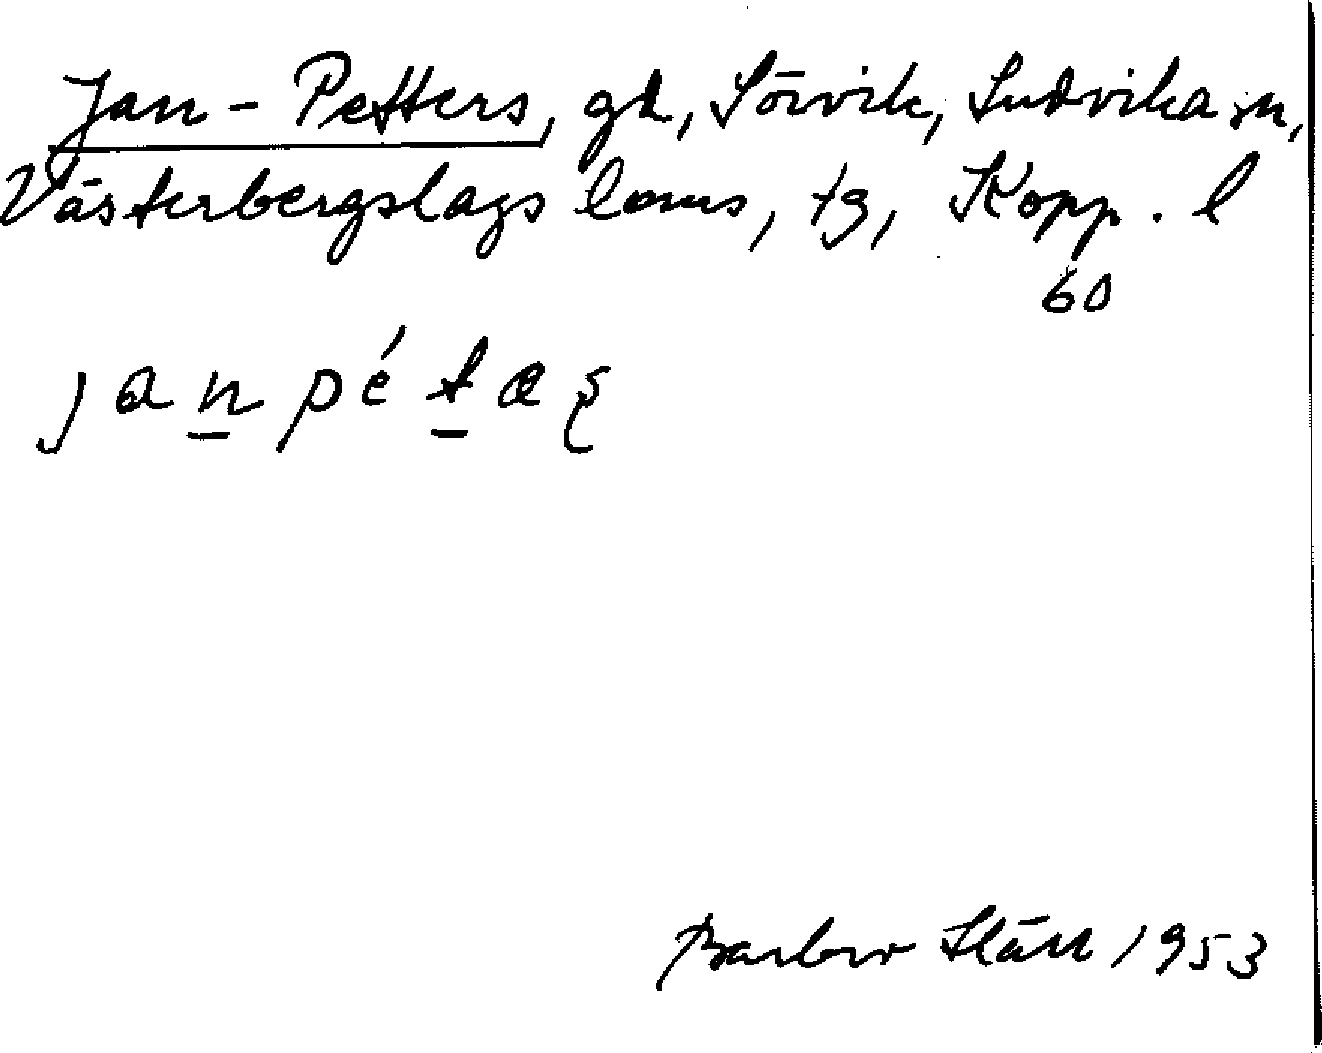 Jan-Petters, gd, Sörvik, Ludvika sn,
Västerbergslags doms, tg, Kopp. l
60
j a n p é t æ ʂ
Barbro Ståhl 1953